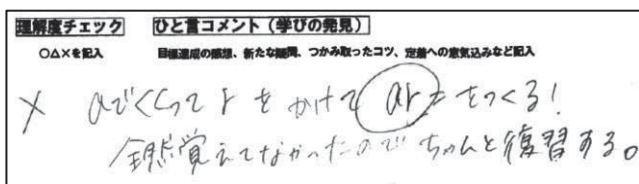 理解度チェック ひと言コメント（学びの発見）
○△×を記入 目標達成の感想、新たな疑問、つかみ取ったコツ、定着への意気込みなど記入
× aでくくってrをかけてar=をつくる!
全然覚えてなかったのでちゃんと復習する。